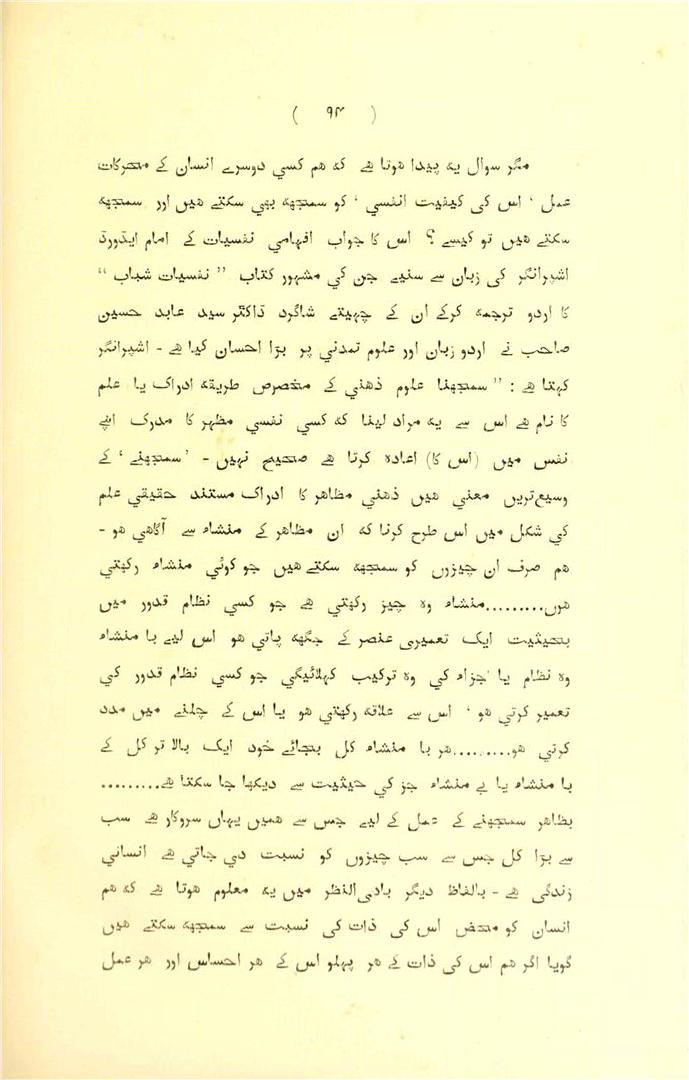 ( ۹۴ )
مگر سوال یہ پیدا ہوتا ہے کہ ہم کسی دوسرے انسان کے محرکات
عمل ' اس کی کیفیت انفسی ' کو سمجھہ بھی سکتے ہیں اور سمجھہ
سکتے ہیں تو کیسے ؟ اس کا جواب افہامی نفسیات کے امام ایڈورڈ
اشپرانگر کی زبان سے سنیے جن کی مشہور کتاب ” نفسیات شباب “
کا اردو ترجمہ کرکے ان کے چہیتے شاگرد ڈاکٹر سید عابد حسین
صاحب نے اردو زبان اور علوم تمدنی پر بڑا احسان کیا ہے - اشپرانگر
کہتا ہے : ” سمجھنا علوم ذہنی کے مخصوص طریقہ ادراک یا علم
کا نام ہے اس سے یہ مراد لینا کہ کسی نفسی مظہر کا مدرک اپنے
نفس میں (اس کا) اعادہ کرتا ہے صحیح نہیں - 'سمجھنے' کے
وسیع‌ترین معنی ہیں ذہنی مظاہر کا ادراک مستند حقیقی علم
کی شکل میں اس طرح کرنا کہ ان مظاہر کے منشاء سے آگاہی ہو -
ہم صرف ان چیزوں کو سمجھہ سکتے ہیں جو کوئی منشاء رکھتی
ہوں.........منشاء وہ چیز رکھتی ہے جو کسی نظام قدور میں
بحیثیت ایک تعمیری عنصر کے جگھہ پاتی ہو اس لیے با منشاء
وہ نظام یا اجزاء کی وہ ترکیب کہلائیگی جو کسی نظام قدور کی
تعمیر کرتی ہو ' اس سے علاقہ رکھتی ہو یا اس کے چلنے میں مدد
کرتی ہو.........ہر با منشاء کل بجائے خود ایک بالا تر کل کے
با منشاء یا بے منشاء جز کی حیثیت سے دیکھا جا سکتا ہے.........
بظاہر سمجھنے کے عمل کے لیے جس سے ہمیں یہاں سروکار ہے سب
سے بڑا کل جس سے سب چیزوں کو نسبت دی جاتی ہے انسانی
زندگی ہے - بالفاظ دیگر بادی‌النظر میں یہ معلوم ہوتا ہے کہ ہم
انسان کو محض اس کی ذات کی نسبت سے سمجھہ سکتے ہیں
گویا اگر ہم اس کی ذات کے ہر پہلو اس کے ہر احساس اور ہر عمل